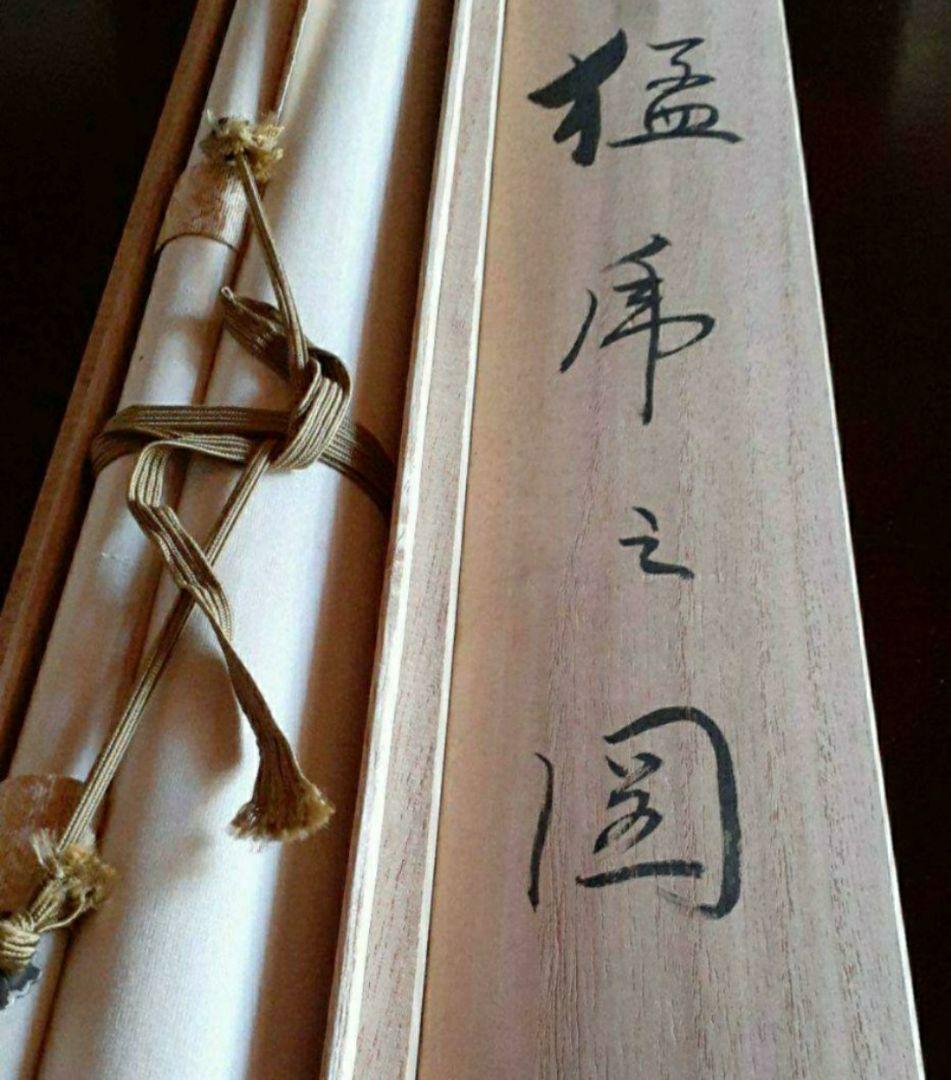 猛虎之圖